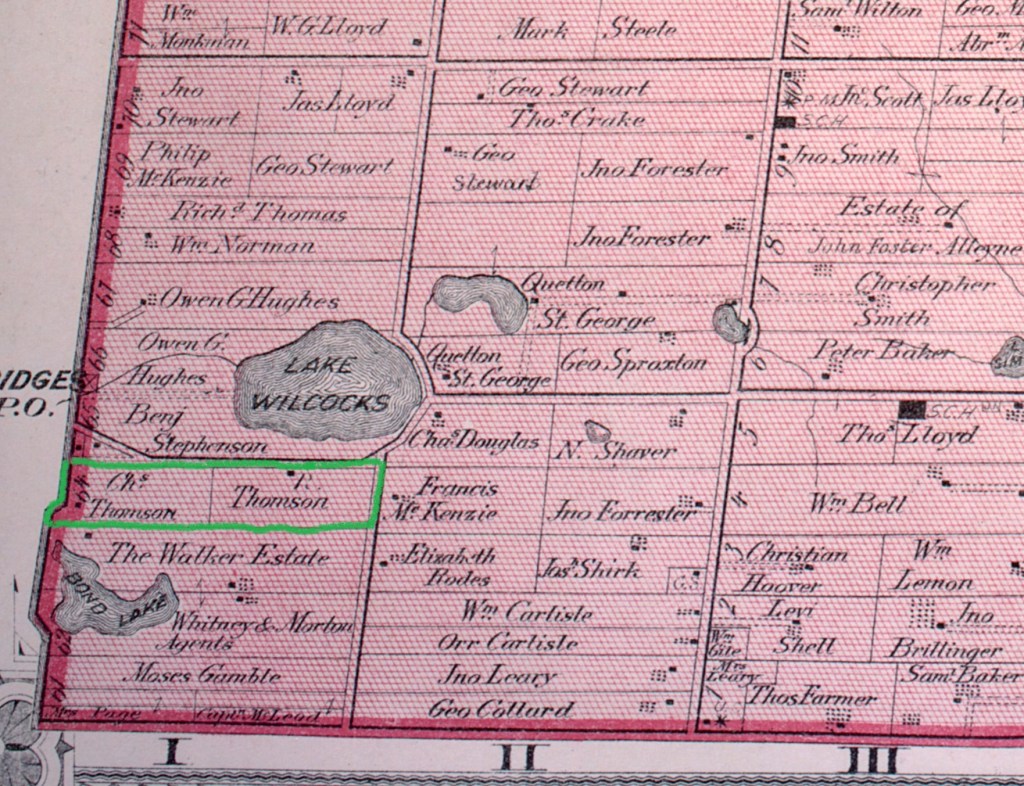 11
Wm
Monkman
W. G. Lloyd
Mark Steele
11
Saml Wilton
Geo
Abrm
70
Jno
Stewart
Jas Lloyd
Geo Stewart
Thos Crake
P.M. Jn. Scott
Jas Lloy
S.C.H
69
Philip
McKenzie
Geo Stewart
Geo
Stewart
Jno Forester
9
Jno Smith
68
Richd Thomas
Wm Norman
Jno Forester
8
Estate of
John Foster Alleyne
67
Owen G Hughes
Quetton
St. George
7
Christopher
Smith
66
Owen G.
Hughes
LAKE
WILCOCKS
Quetton
St. George
Geo Sproxton
6
Peter Baker
S.M
IDGES
P.O.
65
Benj
Stephenson
Chas Douglas
N. Shaver
5
S.C.H
Thos Lloyd
64
Chs
Thomson
Thomson
Francis
McKenzie
Jno Forrester
4
Wm Bell
The Walker Estate
Elizabeth
Rodes
Josh Shirk
3
Christian
Hoover
Wm
Lemon
BOND
LAKE
Whitney & Morton
Agents
Wm Carlisle
2
Levi
Shell
Jno
Brillinger
62
Orr Carlisle
Wm
Gile
Moses Gamble
Jno Leary
Mrs
Leary
1
Thos Farmer
Saml Baker
61
Capt. McLeod
Geo Collard
I
II
III